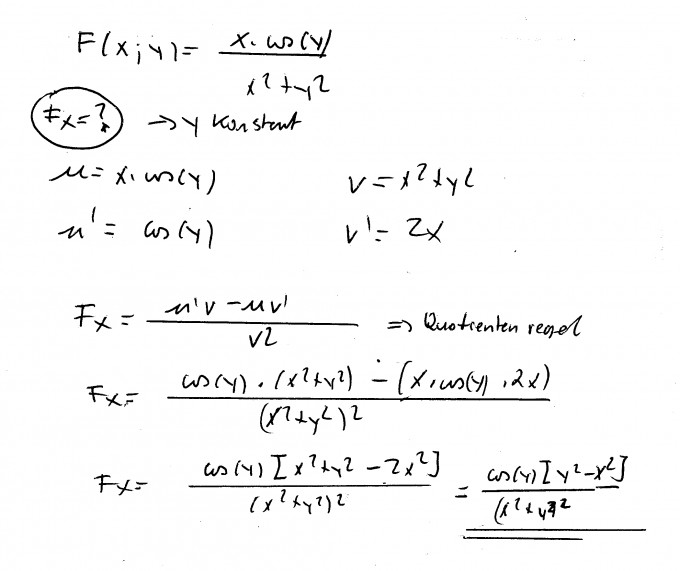 F(x;y) = x · cos(y) / x² + y²
Fx = ? → y Konstant
u = x · cos(y)    v = x² + y²
u' = cos(y)    v' = 2x
Fx = u'v - uv' / v2 ⇒ Quotienten regel
Fx = cos(y) · (x² + y²) - (x · cos(y) · 2x) / (x² + y²)²
Fx = cos(y) [x² + y² - 2x²] / (x² + y²)² = cos(y) [y² - x²] / (x² + y²)²